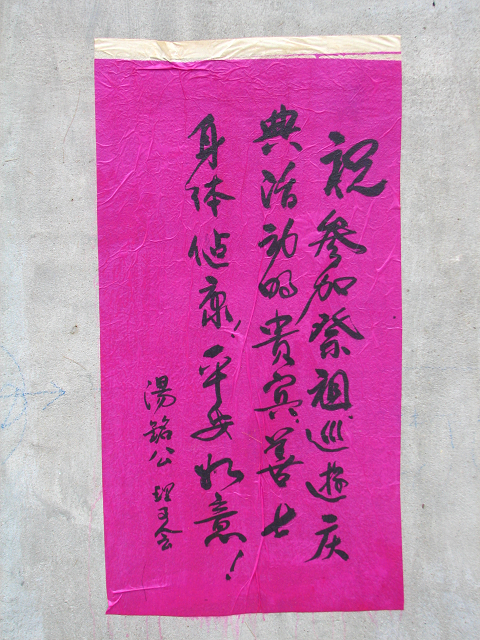 祝参加祭祖、巡遊庆
典活动的贵宾、善士
身体健康、平安如意!
湯銘公理事会